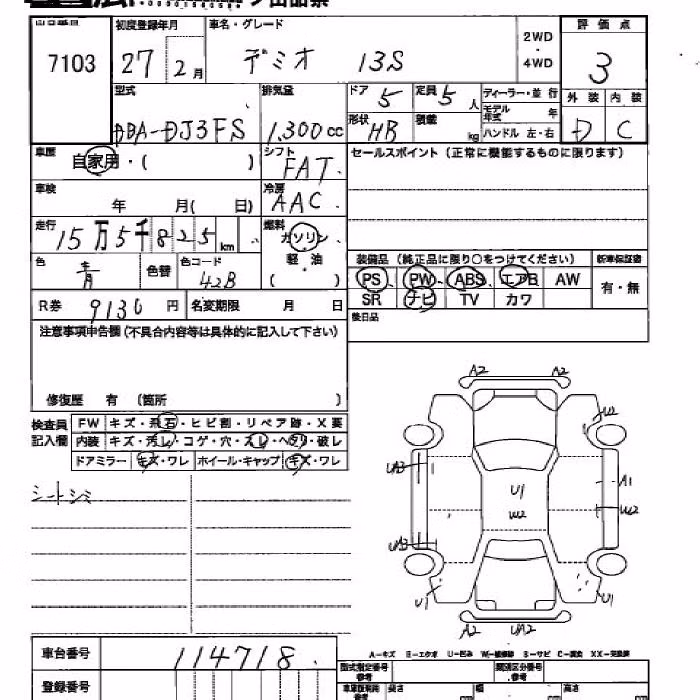 出品番号 初度登録年月 車名・グレード 2WD・4WD 評価点
7103 27年 2月 デミオ 13S 3
型式 排気量 ドア 5 定員 5人 ディーラー・並行 外装 内装
DBA-DJ3FS 1,300cc 形状 HB 積載 kg モデル年式 年 D C
ハンドル 左・右
車歴 自家用・( ) シフト FAT セールスポイント (正常に機能するものに限ります)
車検 年 月( 日) 冷房 AAC
走行 15万5千825km 燃料 ガソリン 軽・油 ( )
色 青 色替 色コード 42B 装備品 (純正品に限り○をつけてください) 新車保証書
PS PW ABS エアB AW 有・無
R券 9130円 名変期限 月 日 SR ナビ TV カワ
注意事項申告欄 (不具合内容等は具体的に記入して下さい) 後日品
修復歴 有 (箇所 )
検査員記入欄 FW キズ・飛石・ヒビ割・リペア跡・X要
内装 キズ・汚レ・コゲ・穴・スレ・ヘタリ・破レ
ドアミラー キズ・ワレ ホイール・キャップ キズ・ワレ
シートシミ
A2 A2
W2
UA3 A1
U1
W2 W2
UA3
U1 U1
A2 UA2
A-キズ E-エクボ U-凹み W-補修跡 S-サビ C-腐食 XX-交換済
車台番号 114718
登録番号
型式指定番号 類別区分番号
長さ 幅 高さ